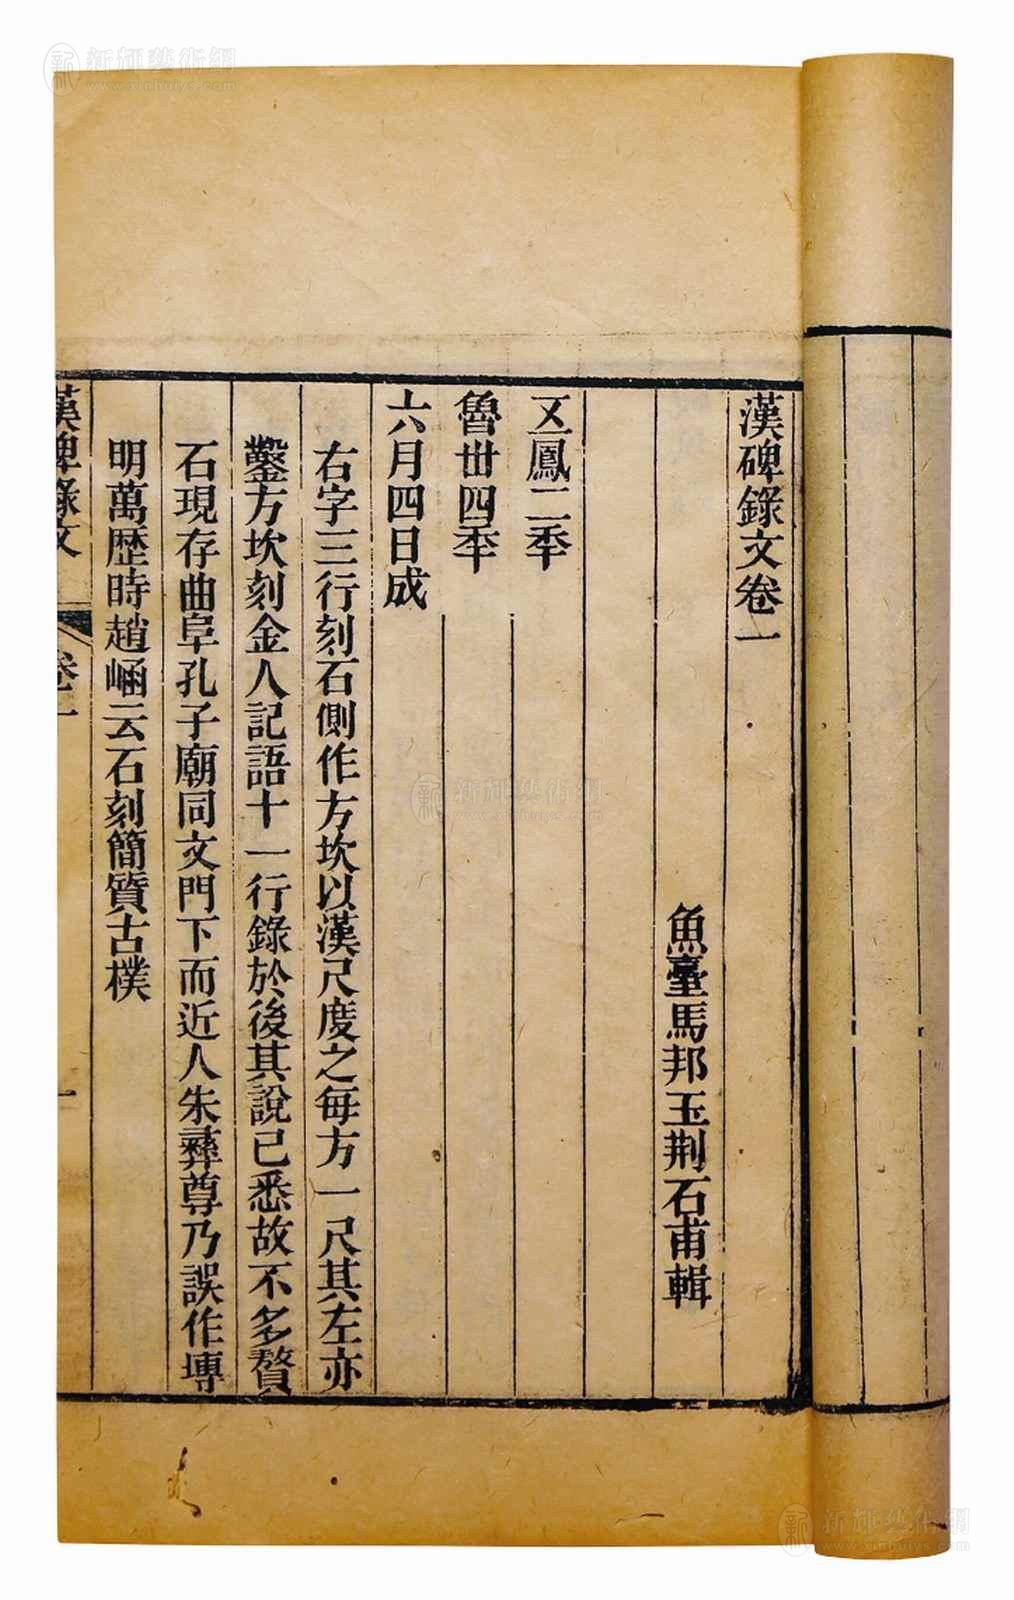 漢碑錄文卷一
魚臺馬邦玉荆石甫輯
五鳳二秊
魯丗四秊
六月四日成
右字三行刻石側作方坎以漢尺度之每方一尺其左亦
鑿方坎刻金人記語十一行錄於後其說已悉故不多贅
石現存曲阜孔子廟同文門下而近人朱彝尊乃誤作塼
明萬歴時趙崡云石刻簡質古樸
漢碑錄文
卷一
一
新輝藝術網
www.xinhuiys.com
新輝藝術網
www.xinhuiys.com
新輝藝術網
www.xinhuiys.com